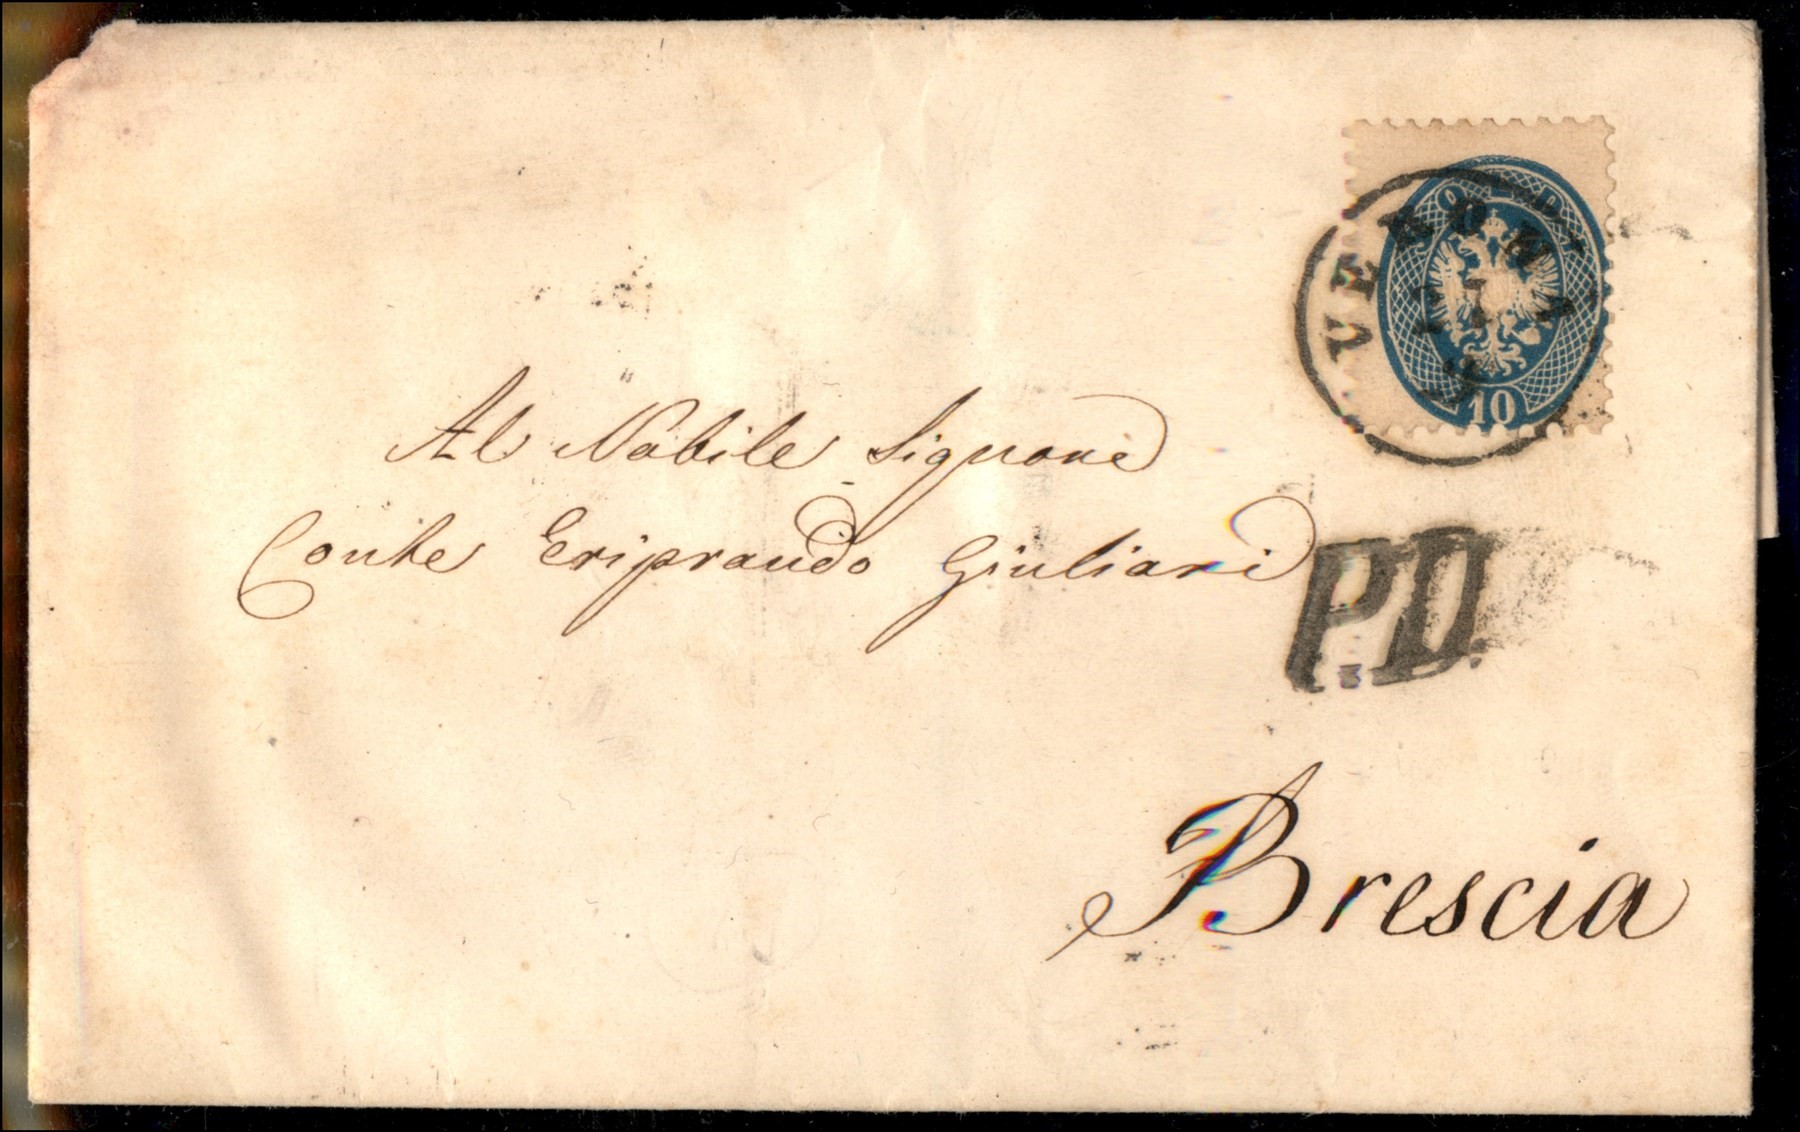 VERONA
SOLDI
10
Al Nobile Signore
Conte Eriprando Giuliari
P.D.
Brescia